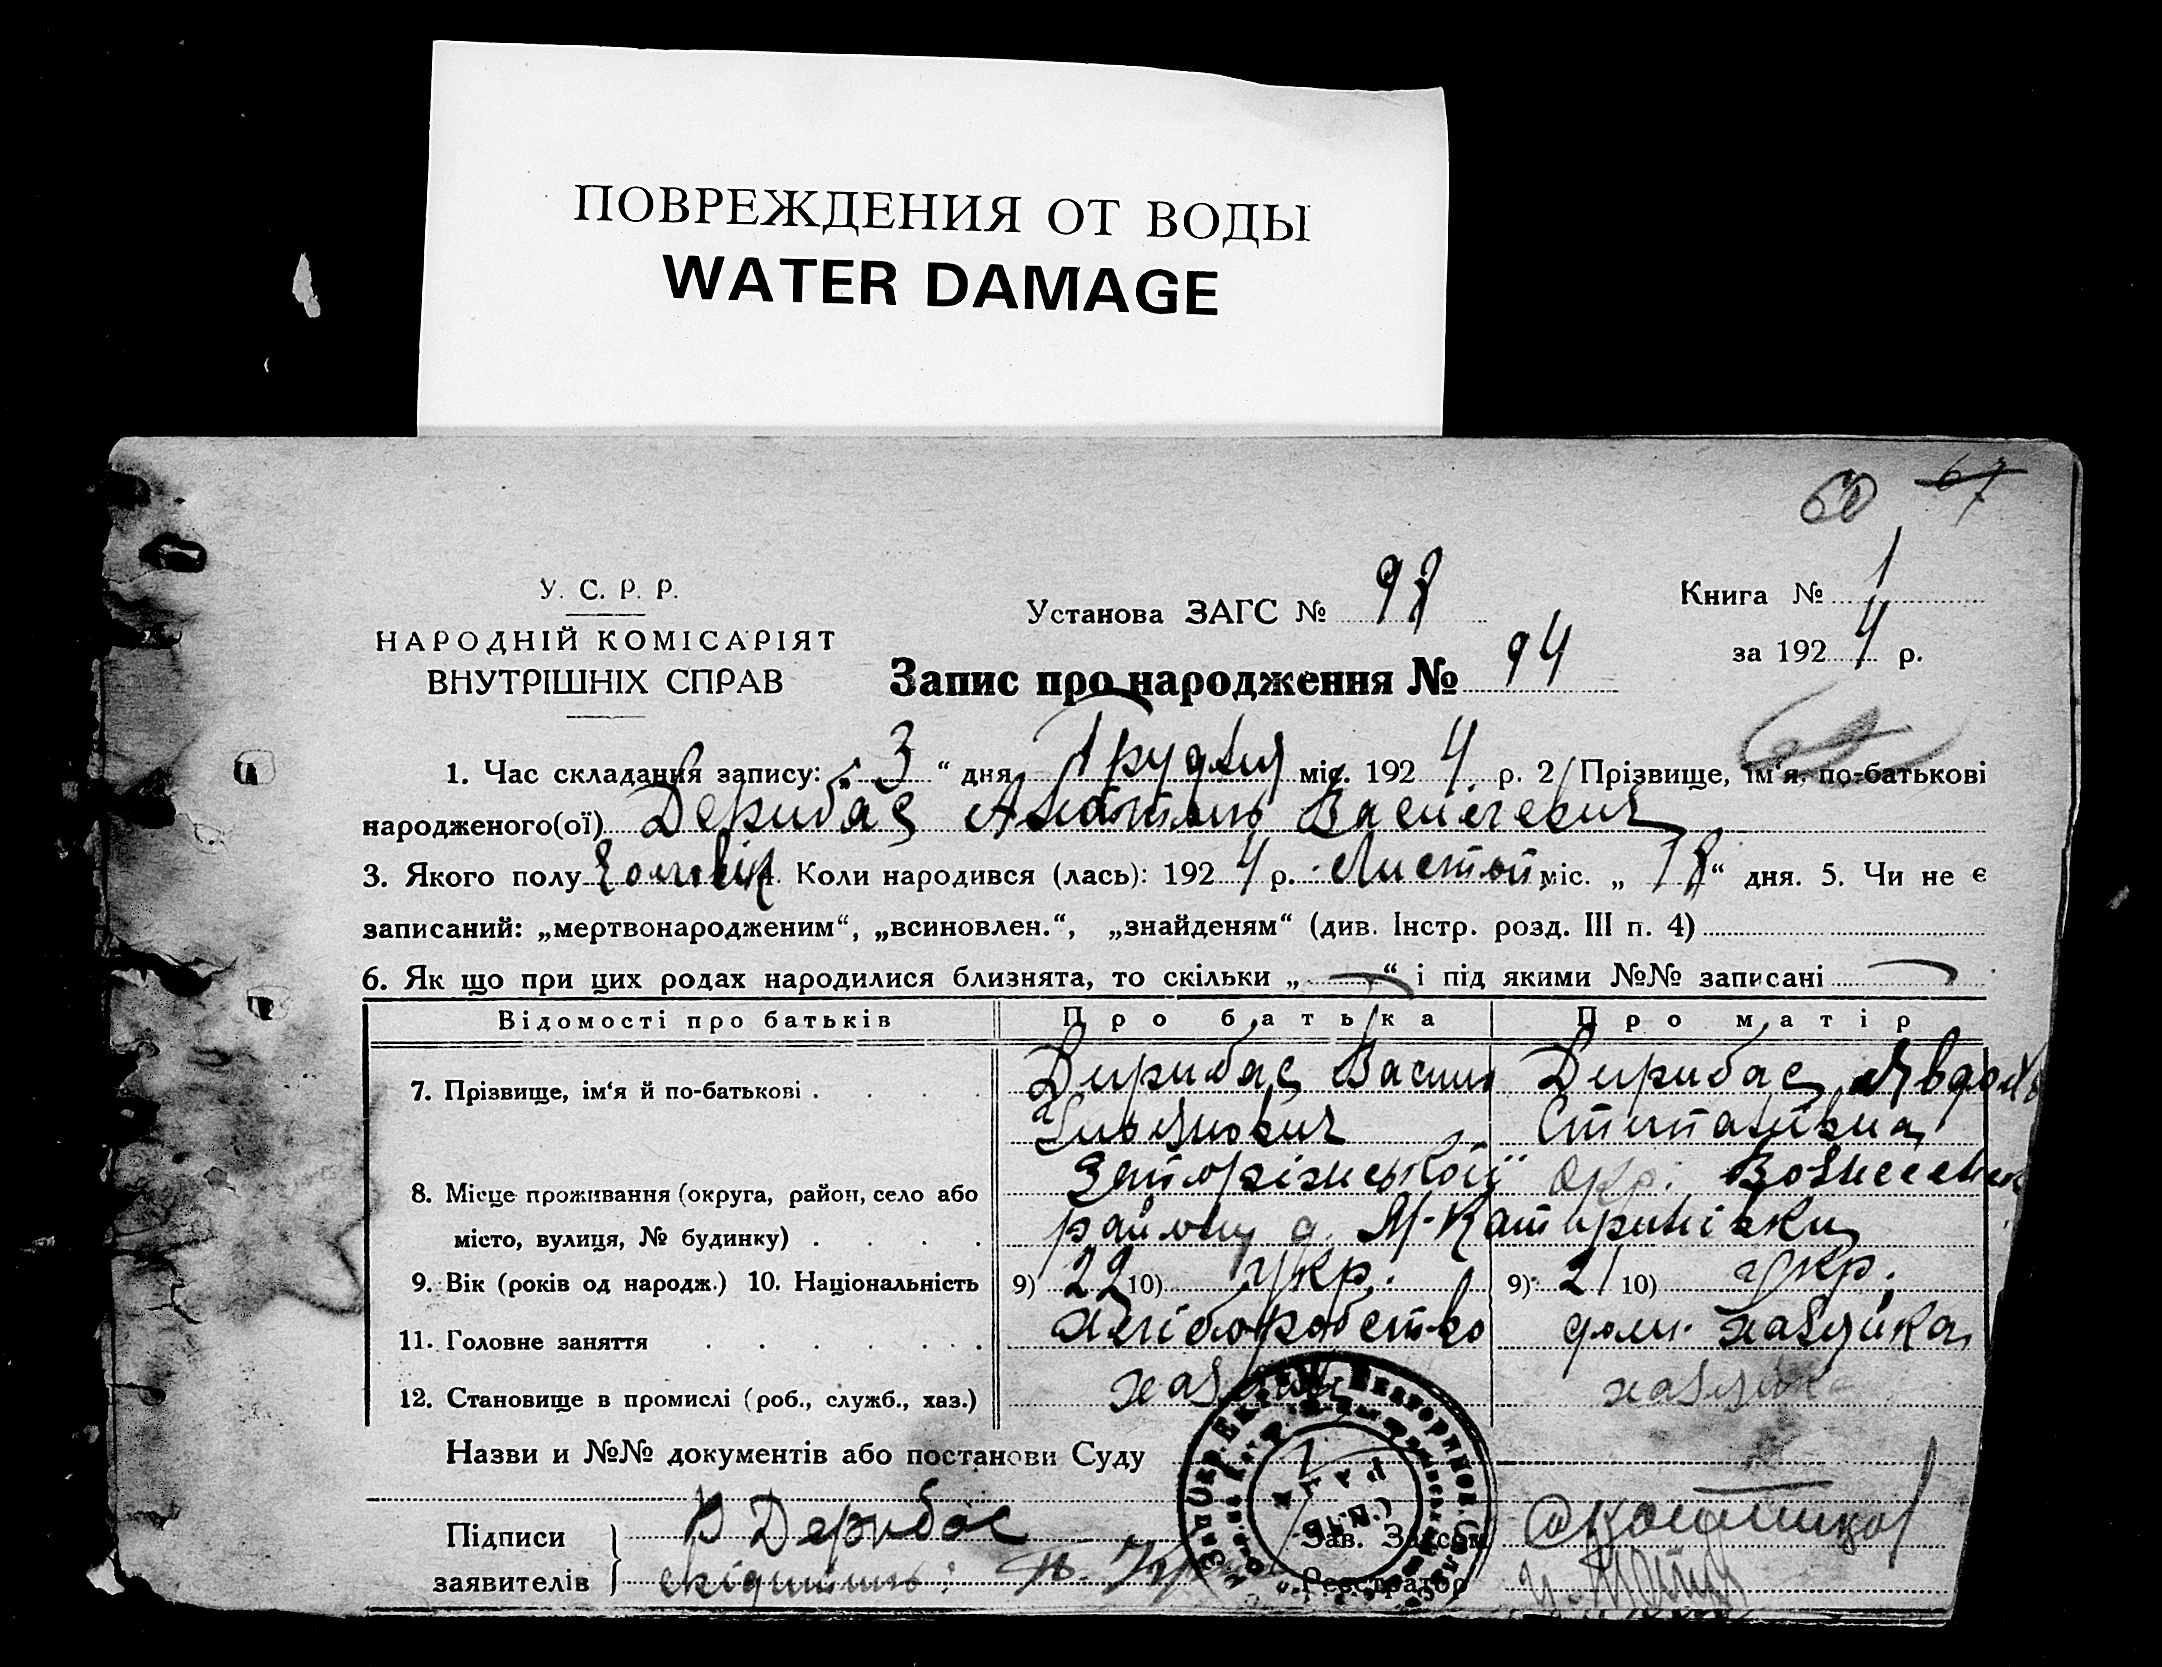 ПОВРЕЖДЕНИЯ ОТ ВОДЫ
WATER DAMAGE
60 67
У. С. Р. Р.
НАРОДНІЙ КОМІСАРІЯТ
ВНУТРІШНІХ СПРАВ
Установа ЗАГС № 98
Книга № 1
за 1924 р.
Запис про народження № 94
1. Час складання запису: „3“ дня Грудня міс. 1924 р. 2/ Прізвище, ім'я, по-батькові
народженого(ої) Дерибас Анатоль Васильевич
3. Якого полу Чоловік 4. Коли народився (лась): 1924 р. Листоп. міс. „18“ дня. 5. Чи не є
записаний: „мертвонародженим“, „всиновлен.“, „знайденям“ (див. Інстр. розд. III п. 4)
6. Як що при цих родах народилися близнята, то скільки „—“ і під якими №№ записані —
Відомості про батьків Про батька Про матір
7. Прізвище, ім'я й по-батькові Дерибас Василь Дерибас Явдох
Степановна
8. Місце проживання (округа, район, село або Запорізької окр. Вознесенск
місто, вулиця, № будинку) району д. М-Катеринівки
9. Вік (років од народж.) 10. Національність 9) 22 10) Укр. 9) 21 10) укр.
11. Головне заняття хліборобство дом. хазяйка
12. Становище в промислі (роб., служб., хаз.) хазяїн хазяйка
Назви и №№ документів або постанови Суду
Підписи В Дерибас Зав. Загсом
заявителів Реєстратор